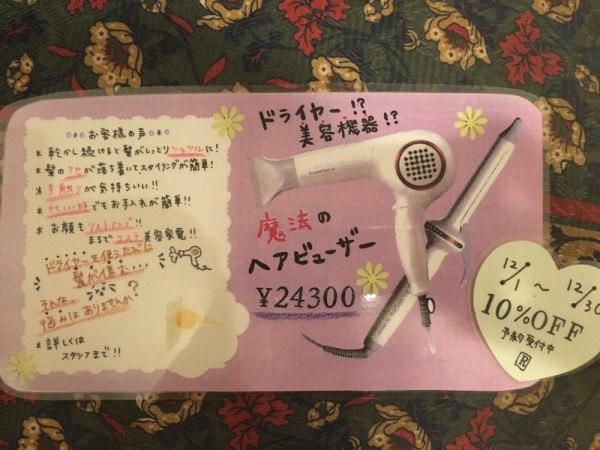 お客様の声
* 乾かし続けると髪がしっとりツルツルに!
* 髪のクセが落ち着いてスタイリングが簡単!
* 手触りが気持ちいい!!
* 忙しい時でもお手入れが簡単!!
* お顔もリフトアップ!!
まるでエステ美容家電!!
ドライヤーを使うたびに
髪が傷む...
そんな
悩みはありませんか?
* 詳しくは
スタッフまで!!
ドライヤー!?
美容機器!?
魔法の
ヘアビューザー
¥24300
12/1 ~ 12/30
10%OFF
予約受付中
R